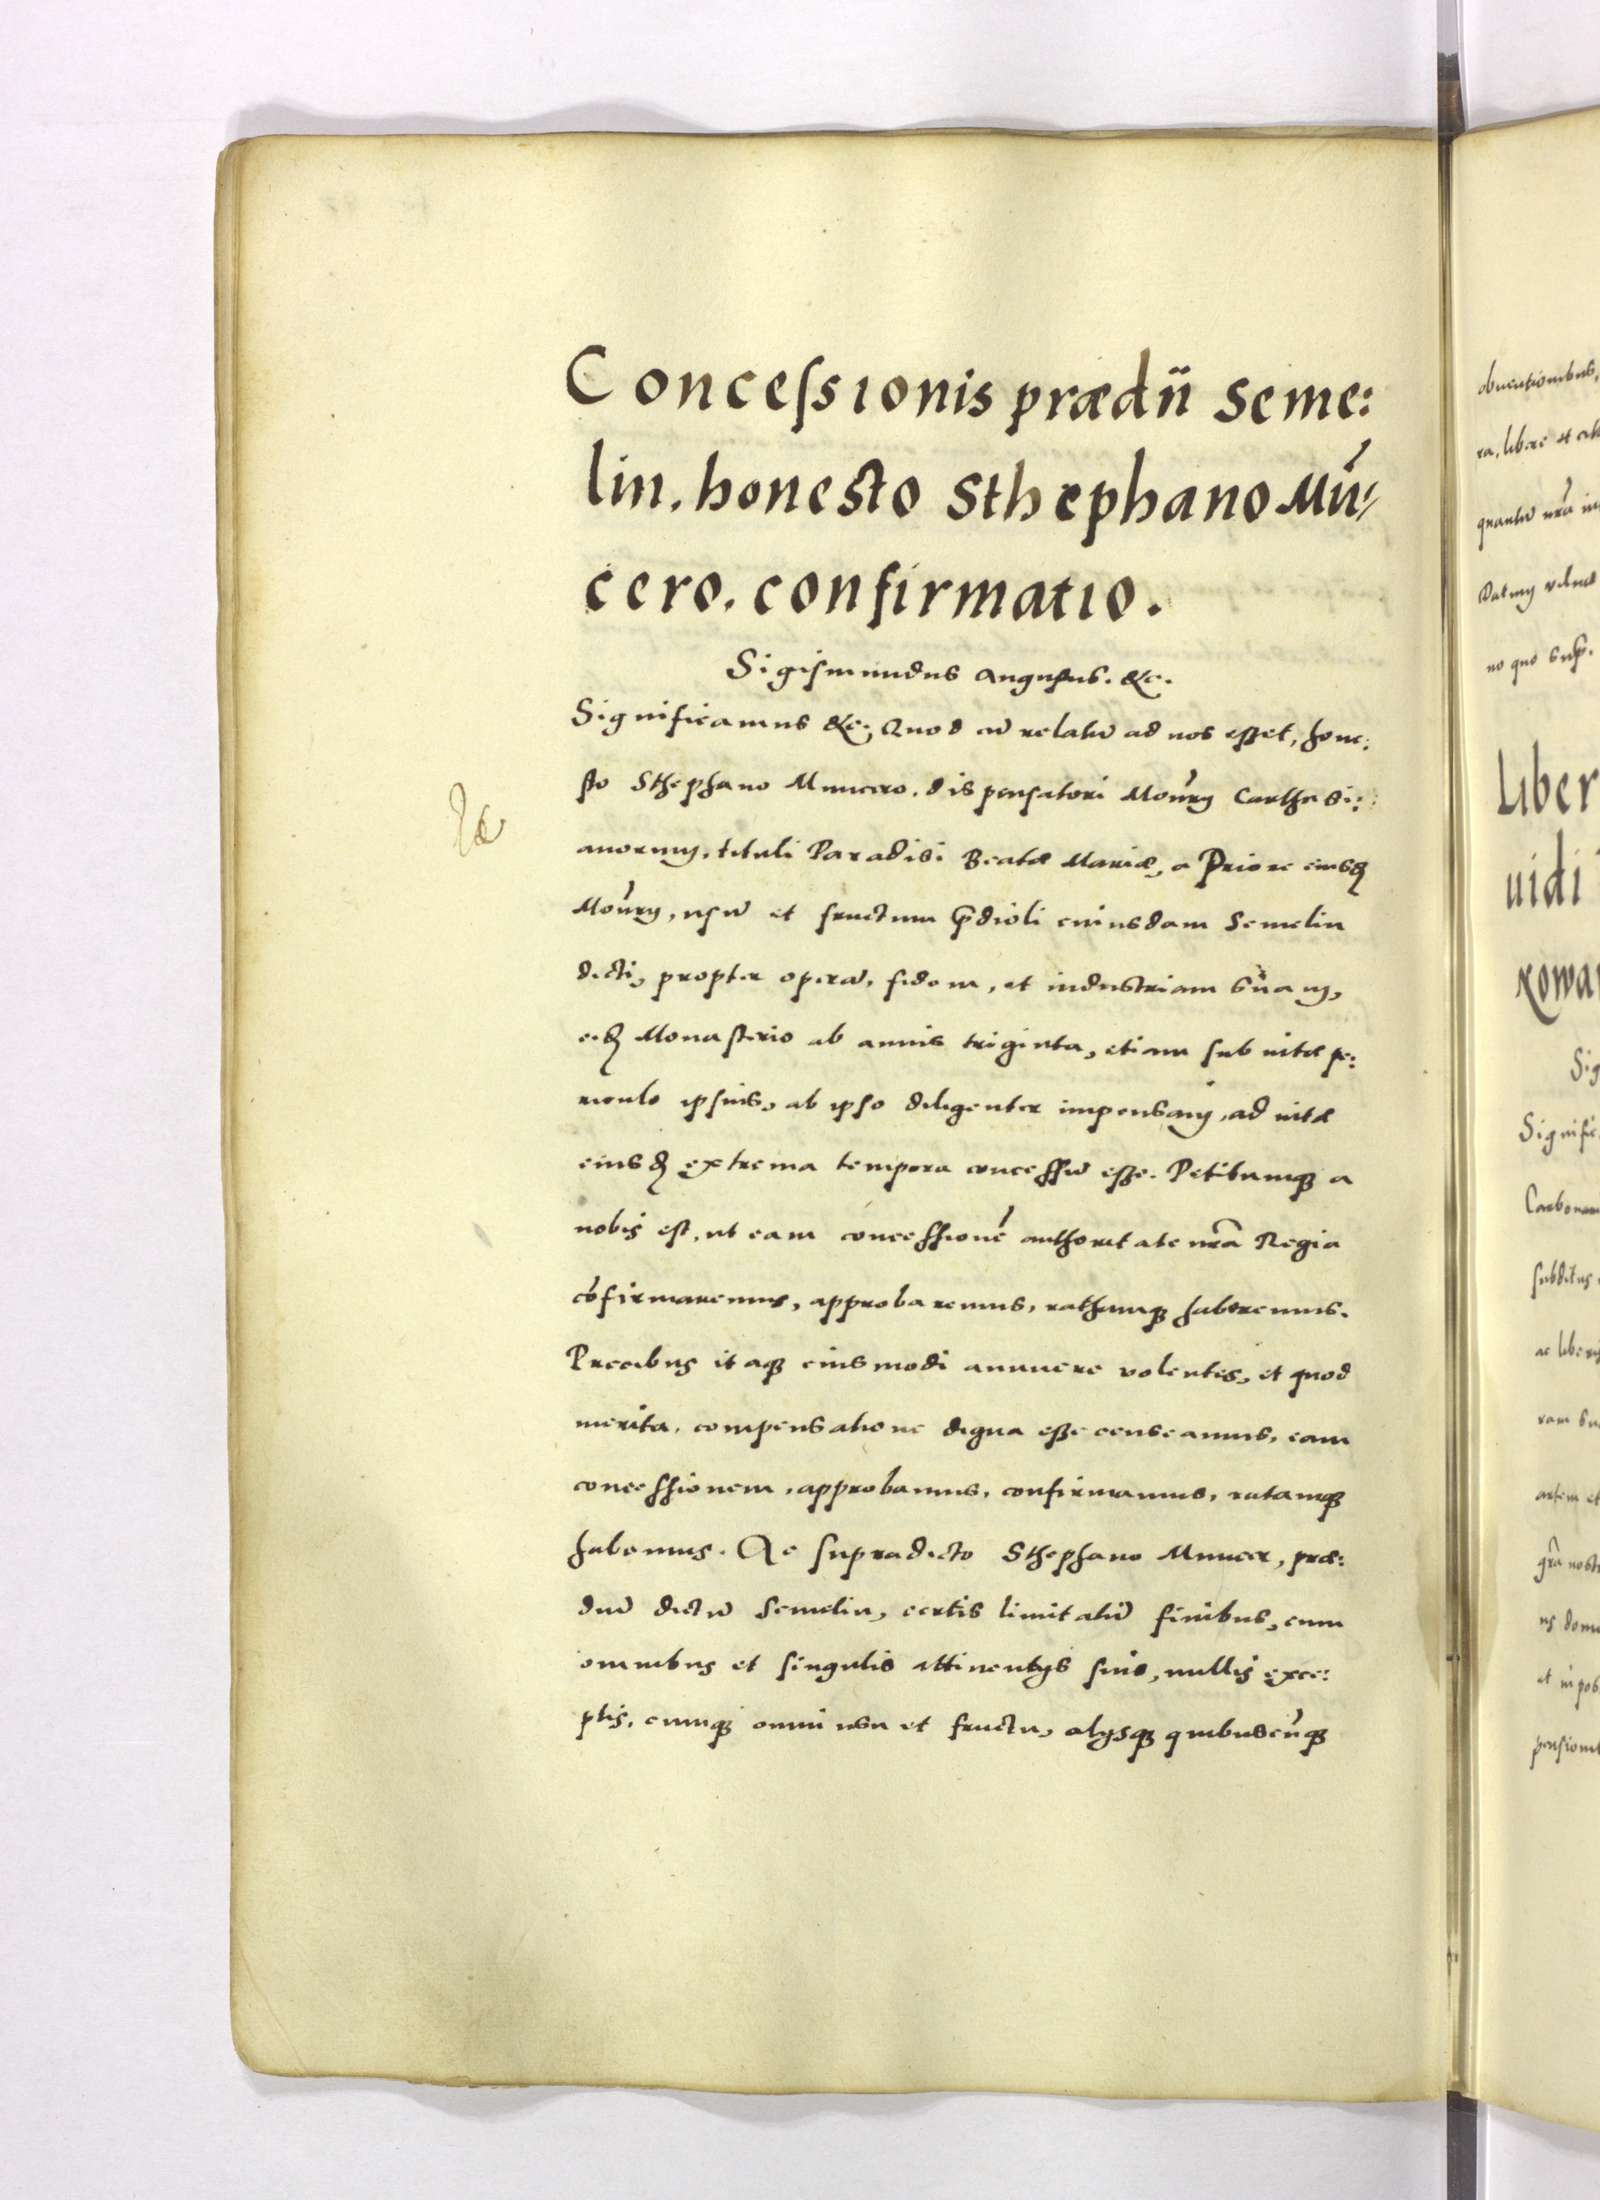 Concessionis prædii Seme:
lin. honesto Sthephano Mu̍n⸗
cero. confirmatio.
Sigismundus Augustus. &c.
Significamus &c. Quod cū relatū ad nos esset, hone:
sto Sthephano Muncero. dispensatori Mo̍nrÿ Carthusi:
anorum, tituli Paradisi Beatæ Mariæ, a Priore eiusd
Mo̍nrÿ, usū et fructum p̄dioli cuiusdam Semelin
dicti, propter operā, fidem, et industriam suam,
eid Monasterio ab annis triginta, etiam sub vitæ pe:
riculo ipsius, ab ipso diligenter impensam, ad vitæ
eiusd extrema tempora concessū esse. Petitumq a
nobis est, ut eam concessionē authoritate nrā Regia
cōfirmaremus, approbaremus, rathamq haberemus.
Precibus itaq eiusmodi annuere volentes, et quod
merita, compensatione digna esse censeamus, eam
concessionem, approbamus, confirmamus, ratamq
habemus. Ac supradicto Sthephano Muncer, præ:
diū dictū Semelin, certis limitatū finibus, cum
omnibus et singulis attinentÿs suis, nullis exce:
ptis, cumq omni usu et fructu, alÿsq quibuscūq
obuentionibus,
ra, libere et
quantū nrā
Datum Vilnæ
no quo sup.
Liber
uidi
xowa
Sig
Signific
Carbonar
subditus
ac liberis
ram su
artem et
grā nostr
us domu
et in pos
pensioni